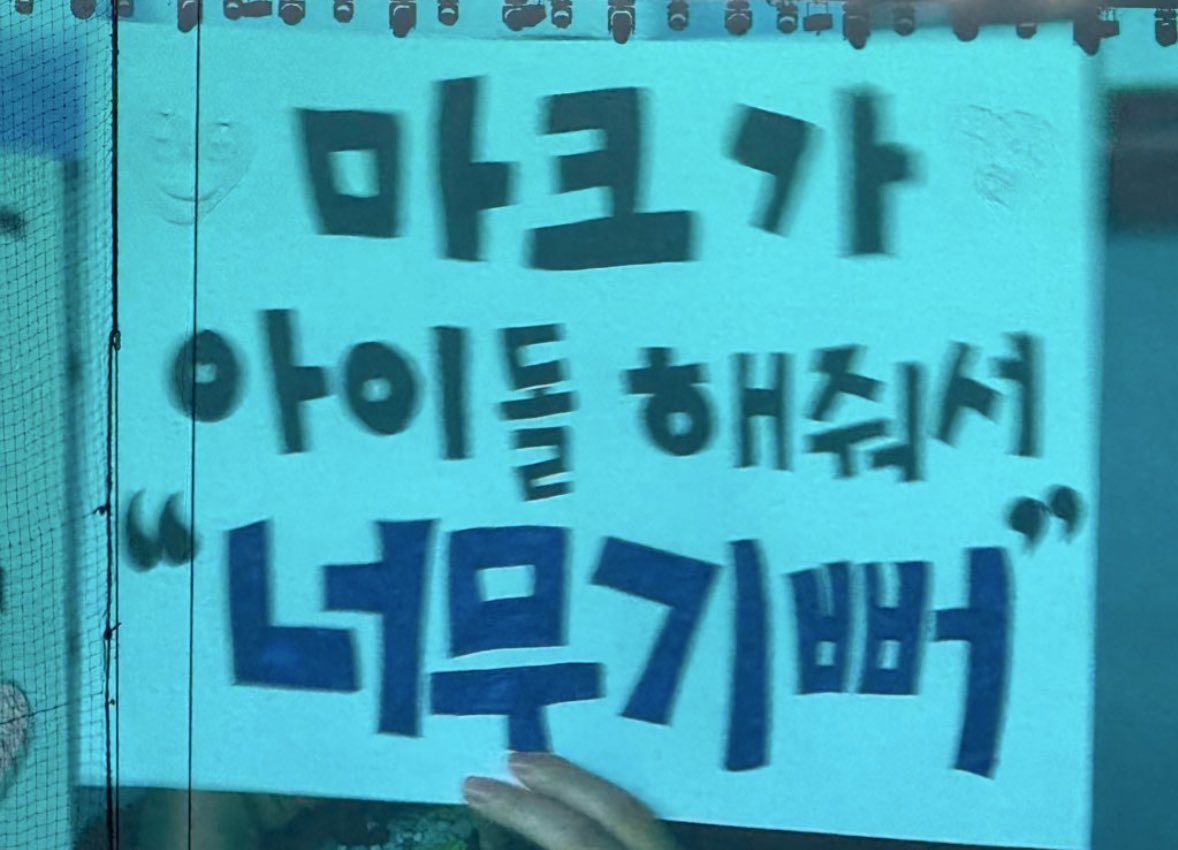 마크가
아이돌 해줘서
“너무기뻐”